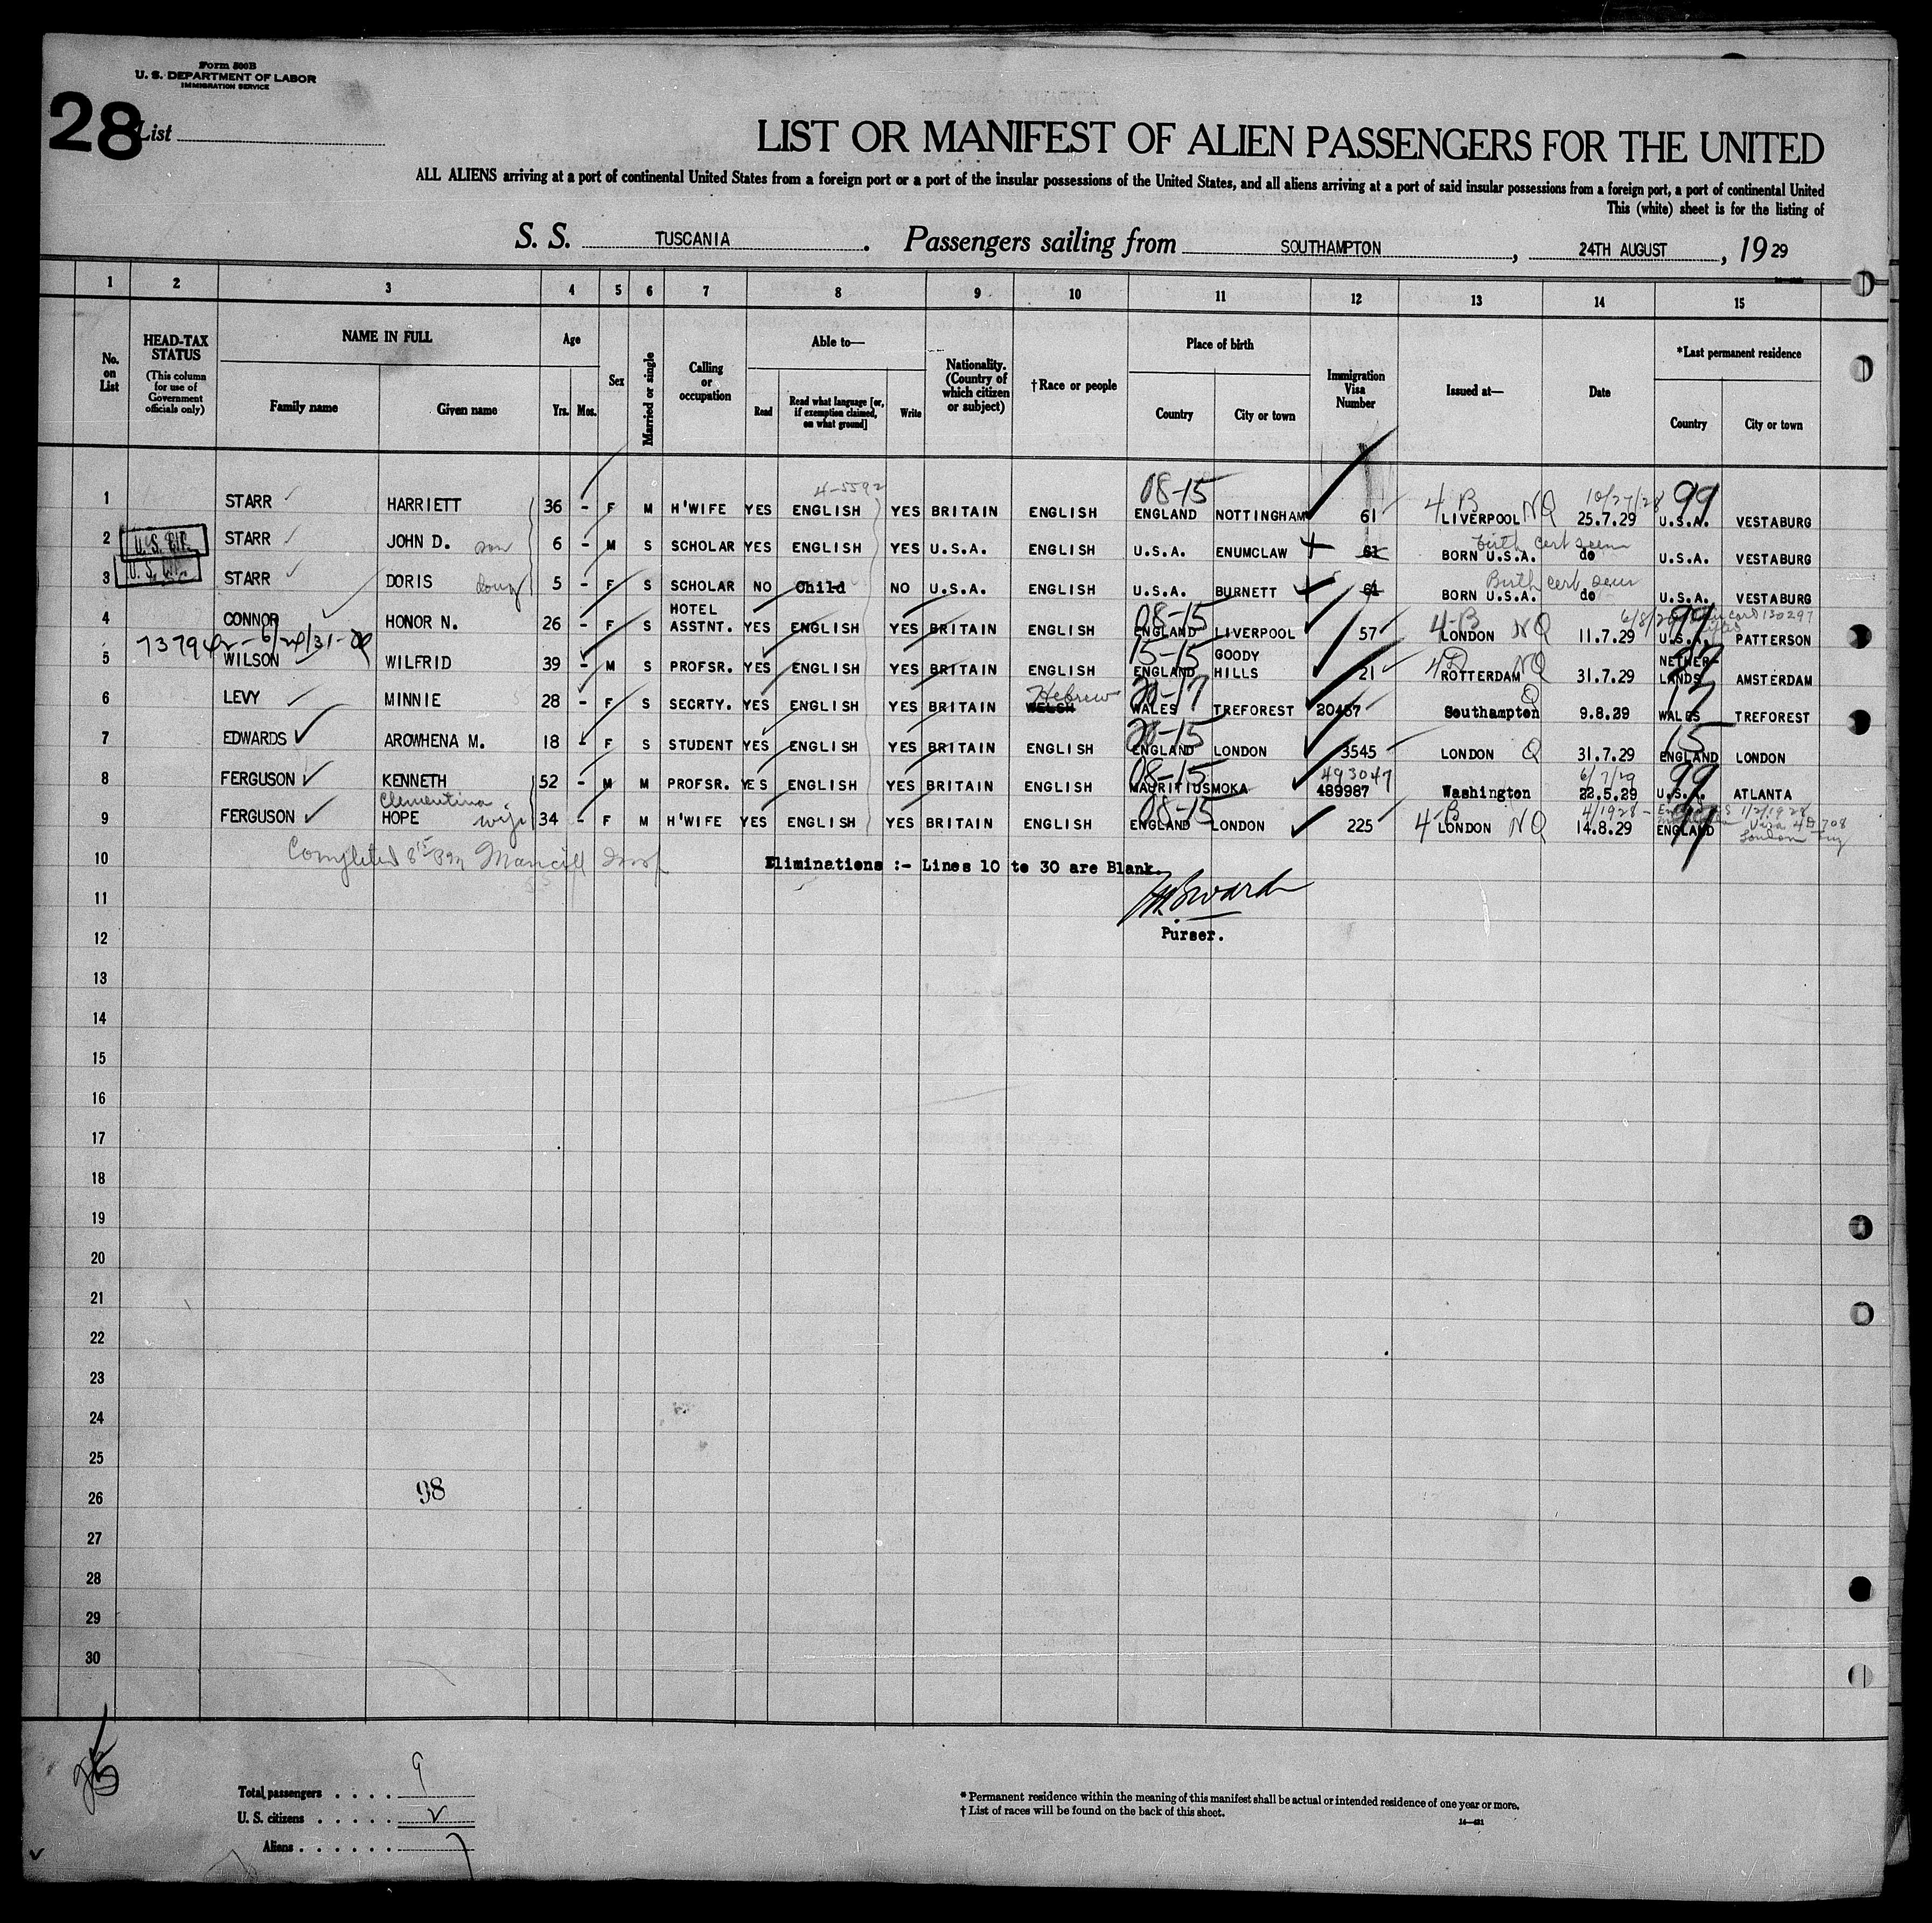 Form 500B
U. S. DEPARTMENT OF LABOR
IMMIGRATION SERVICE
28
List
LIST OR MANIFEST OF ALIEN PASSENGERS FOR THE UNITED
ALL ALIENS arriving at a port of continental United States from a foreign port or a port of the insular possessions of the United States, and all aliens arriving at a port of said insular possessions from a foreign port, a port of continental United
This (white) sheet is for the listing of
S. S. TUSCANIA. Passengers sailing from SOUTHAMPTON, 24TH AUGUST, 1929
1 2 3 4 5 6 7 8 9 10 11 12 13 14 15
No. on List
HEAD-TAX STATUS
(This column for use of Government officials only)
NAME IN FULL
Family name
Given name
Age
Yrs. Mos.
Sex
Married or single
Calling or occupation
Able to—
Read
Read what language [or, if exemption claimed, on what ground]
Write
Nationality. (Country of which citizen or subject)
†Race or people
Place of birth
Country
City or town
Immigration Visa Number
Issued at—
Date
*Last permanent residence
Country
City or town
4-5592 08-15 4 B NQ 10/27/28 99
1 STARR HARRIETT 36 - F M H'WIFE YES ENGLISH YES BRITAIN ENGLISH ENGLAND NOTTINGHAM 61 LIVERPOOL 25.7.29 U.S.A. VESTABURG
birth cert seen
2 U.S. CIT. STARR JOHN D. son 6 - M S SCHOLAR YES ENGLISH YES U.S.A. ENGLISH U.S.A. ENUMCLAW 61 BORN U.S.A. do U.S.A. VESTABURG
Birth cert seen
3 U.S. CIT. STARR DORIS 5 - F S SCHOLAR NO Child NO U.S.A. ENGLISH U.S.A. BURNETT 61 BORN U.S.A. do U.S.A. VESTABURG
08-15 4-B NQ 99
4 CONNOR HONOR N. 26 - F S HOTEL ASSTNT. YES ENGLISH YES BRITAIN ENGLISH ENGLAND LIVERPOOL 57 LONDON 11.7.29 U.S.A. PATTERSON
15-15 NQ
5 WILSON WILFRID 39 - M S PROFSR. YES ENGLISH YES BRITAIN ENGLISH ENGLAND GOODY HILLS 21 ROTTERDAM 31.7.29 NETHER-LANDS AMSTERDAM
Hebrew 20-17 Q 17
6 LEVY MINNIE 28 - F S SECRTY. YES ENGLISH YES BRITAIN WELSH WALES TREFOREST 20457 Southampton 9.8.29 WALES TREFOREST
20-15 15
7 EDWARDS AROWHENA M. 18 - F S STUDENT YES ENGLISH YES BRITAIN ENGLISH ENGLAND LONDON 3545 LONDON Q 31.7.29 ENGLAND LONDON
08-15 493047 6/7/29 99
8 FERGUSON KENNETH 52 - M M PROFSR. YES ENGLISH YES BRITAIN ENGLISH MAURITIUS MOKA 489987 Washington 22.5.29 U.S.A. ATLANTA
Clementina 08-15 4-B NQ 99
9 FERGUSON HOPE wife 34 - F M H'WIFE YES ENGLISH YES BRITAIN ENGLISH ENGLAND LONDON 225 LONDON 14.8.29 ENGLAND
10 Completed Eliminations :- Lines 10 to 30 are Blank.
11
12 Purser.
13
14
15
16
17
18
19
20
21
22
23
24
25
26 98
27
28
29
30
Total passengers . . . . 9
U. S. citizens . . . . . 2
Aliens . . . . . . 7
* Permanent residence within the meaning of this manifest shall be actual or intended residence of one year or more.
† List of races will be found on the back of this sheet.